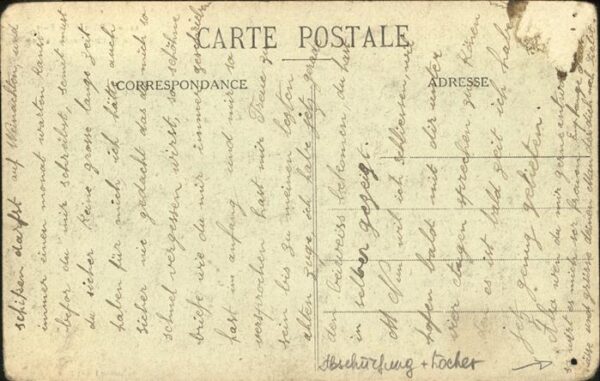 CARTE POSTALE
CORRESPONDANCE
ADRESSE
schiken darfst auf Weinachten, und
immer einen monat warten kanst
befor du mir schreibst, somit must
du sicher keine grosse lange zeit
haben für mich ich hätte auch
Sicher nie gedacht das du mich so
schnel vergessen wirst, so schöne
briefe wie du mir immer geschrieben
hast im anfang und mir so
versprochen hast mir Treue zu
sein bis zu meinen lezten
ich habe jetz grade
den beweiss bekomen, du hast
in selber gezeigt.
Nun wil ich schliessen, und
hofen bald mit dir unter
vier augen sprechen zu könen
den es ist bald zeit ich habe
jetz genug gelitten.
Also wen du mir gerne
es mich ser freuen
Abschürfung + Löcher